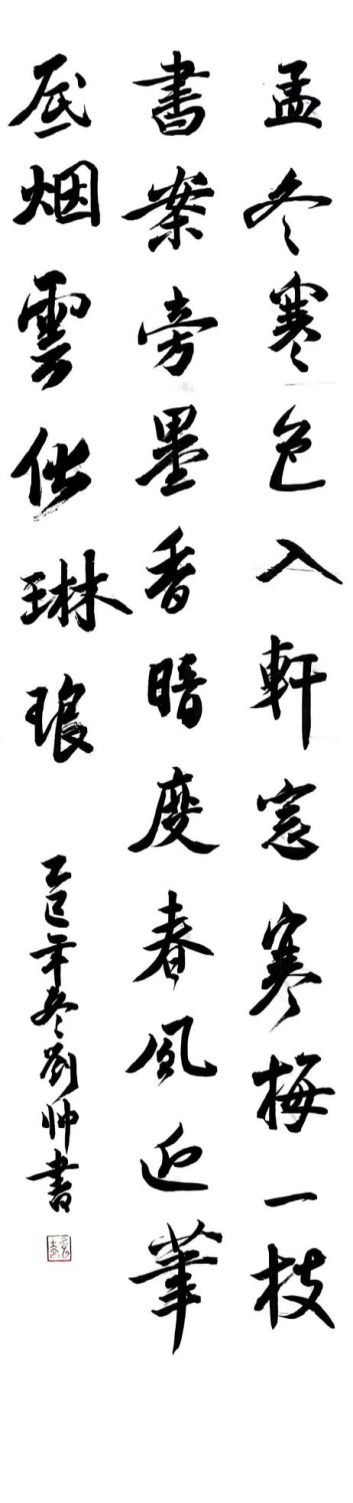 孟冬寒色入軒窓寒梅一枝
書案旁墨香暗度春風近筆
底烟雲琳琅
乙巳年冬劉帅書